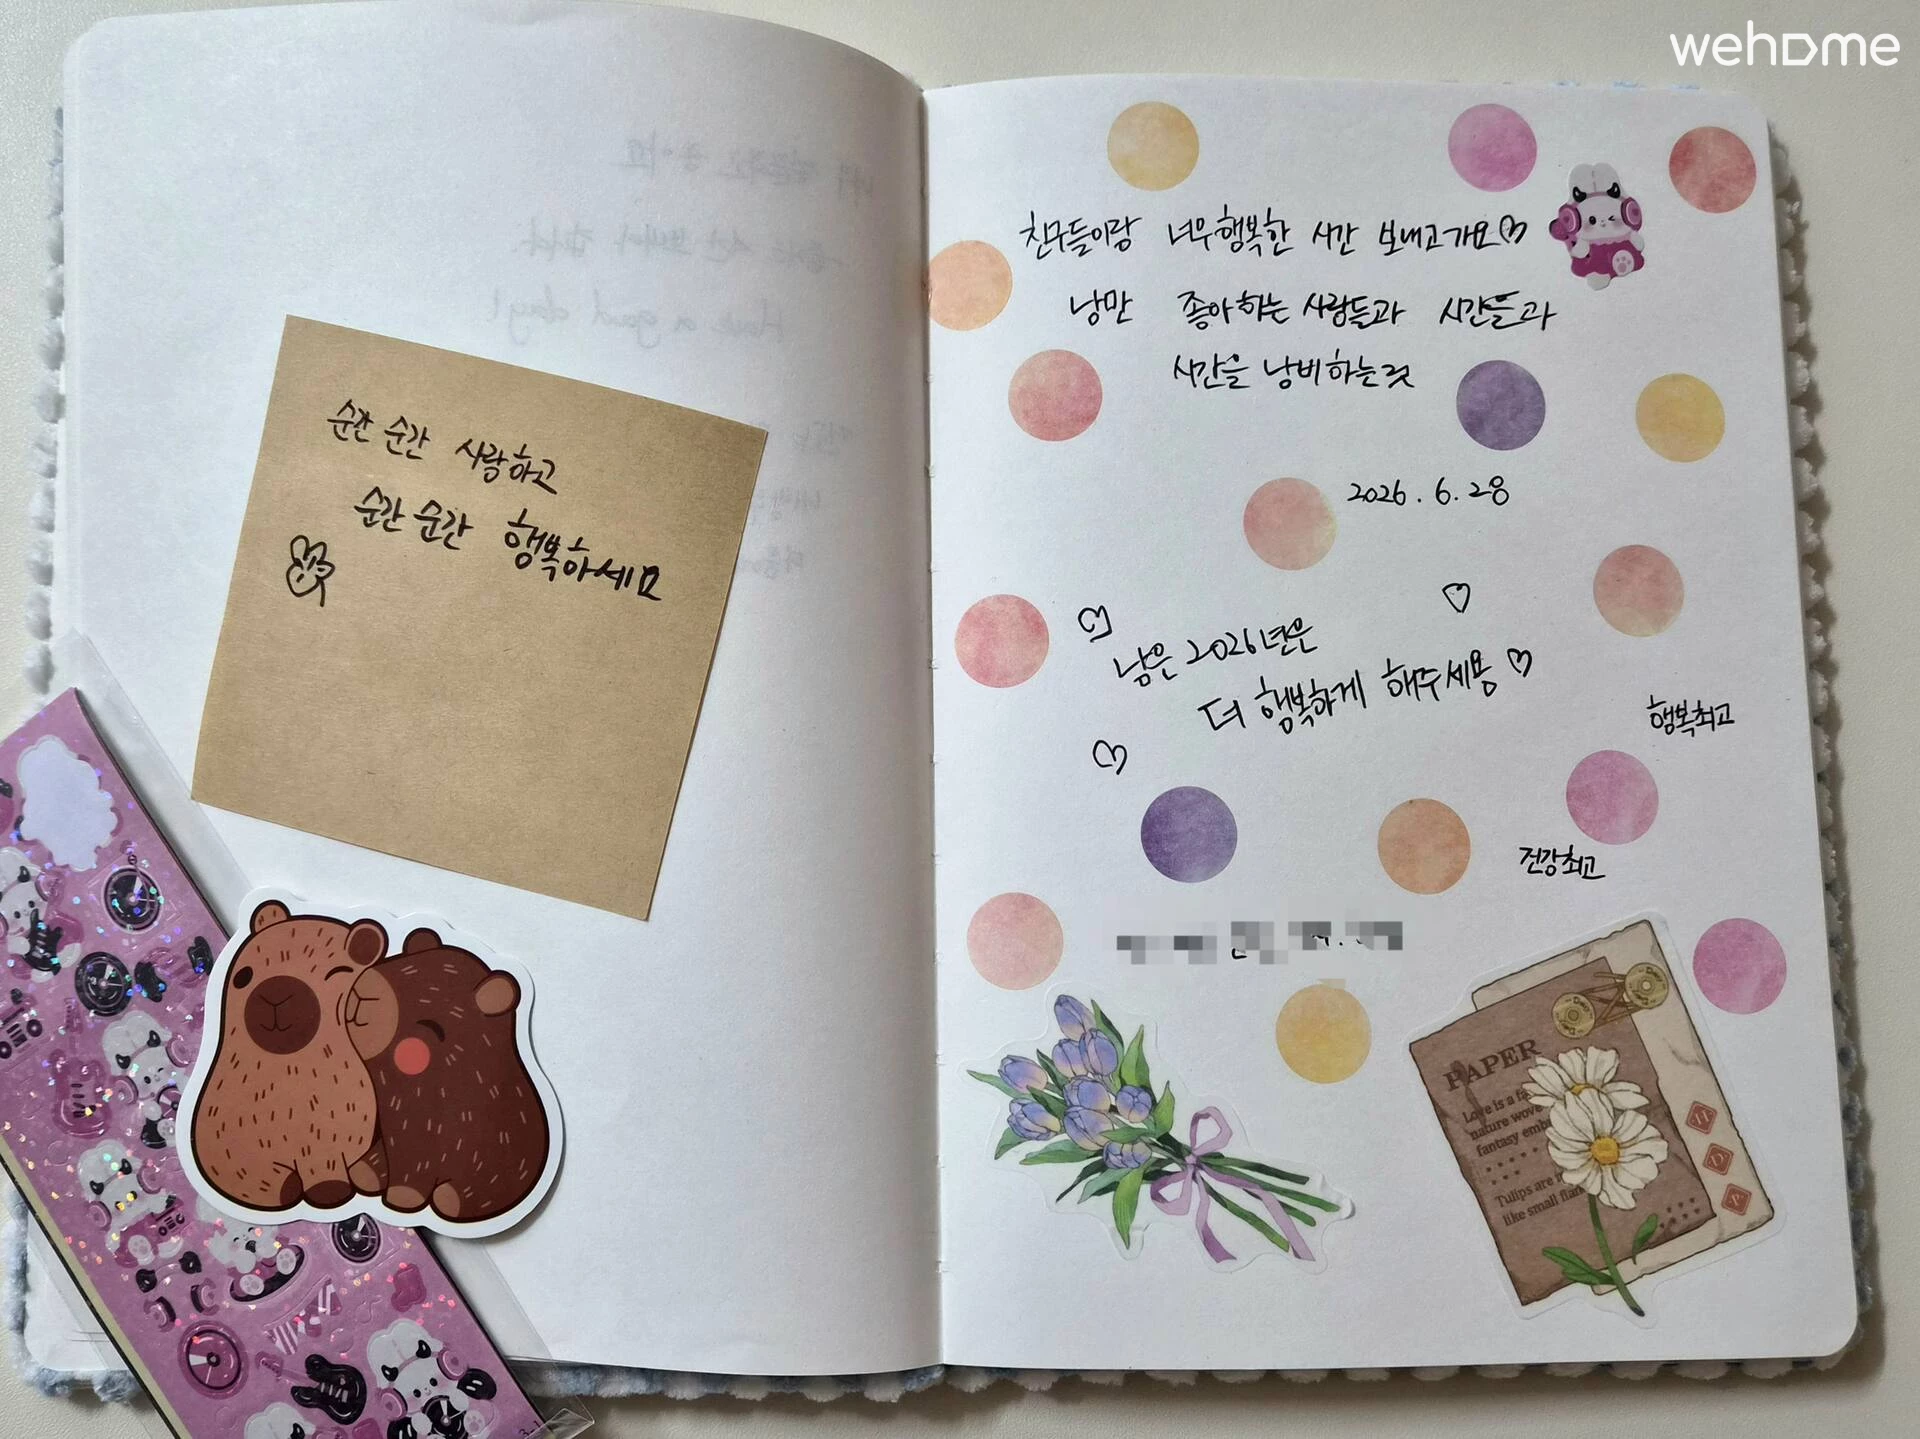 wehome
순간 순간 사랑하고
순간 순간 행복하세요
친구들이랑 너무 행복한 시간 보내고가요♡
낭만 좋아하는 사람들과 시간들과
시간을 낭비하는것
2026. 6. 28
남은 2026년은
더 행복하게 해주세용♡
행복최고
건강최고
PAPER
Love is a fa
nature wove
fantasy emb
Tulips are
like small flam
Have a good day!